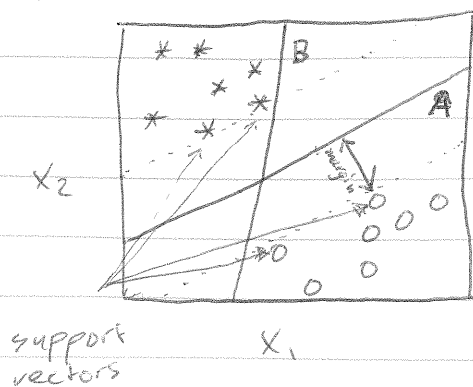 B
A
margin
X2
support
vectors
X1